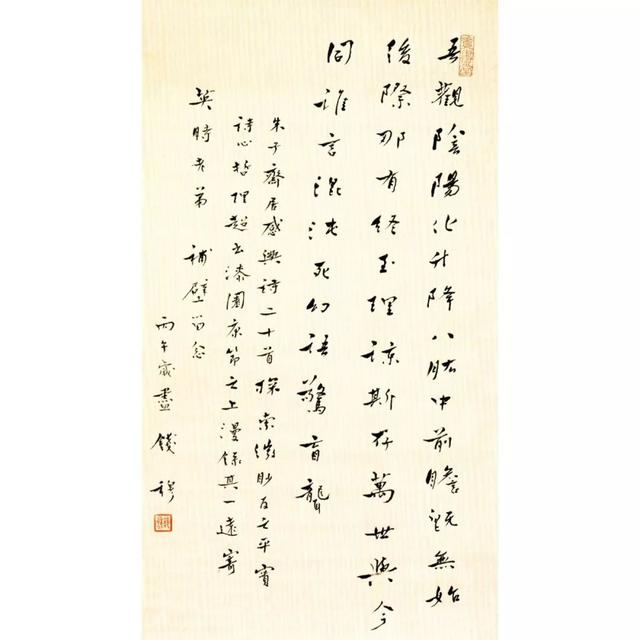 吾觀陰陽化升降八紘中前瞻既無始
後際那有終至理諒斯存萬世與今
同誰言混沌死幻語驚盲聾
朱子齋居感興詩二十首探索微眇反之平實
詩心哲理超出漆園康節之上漫錄其一遠寄
英時老弟 補壁留念
丙午歲盡 錢穆